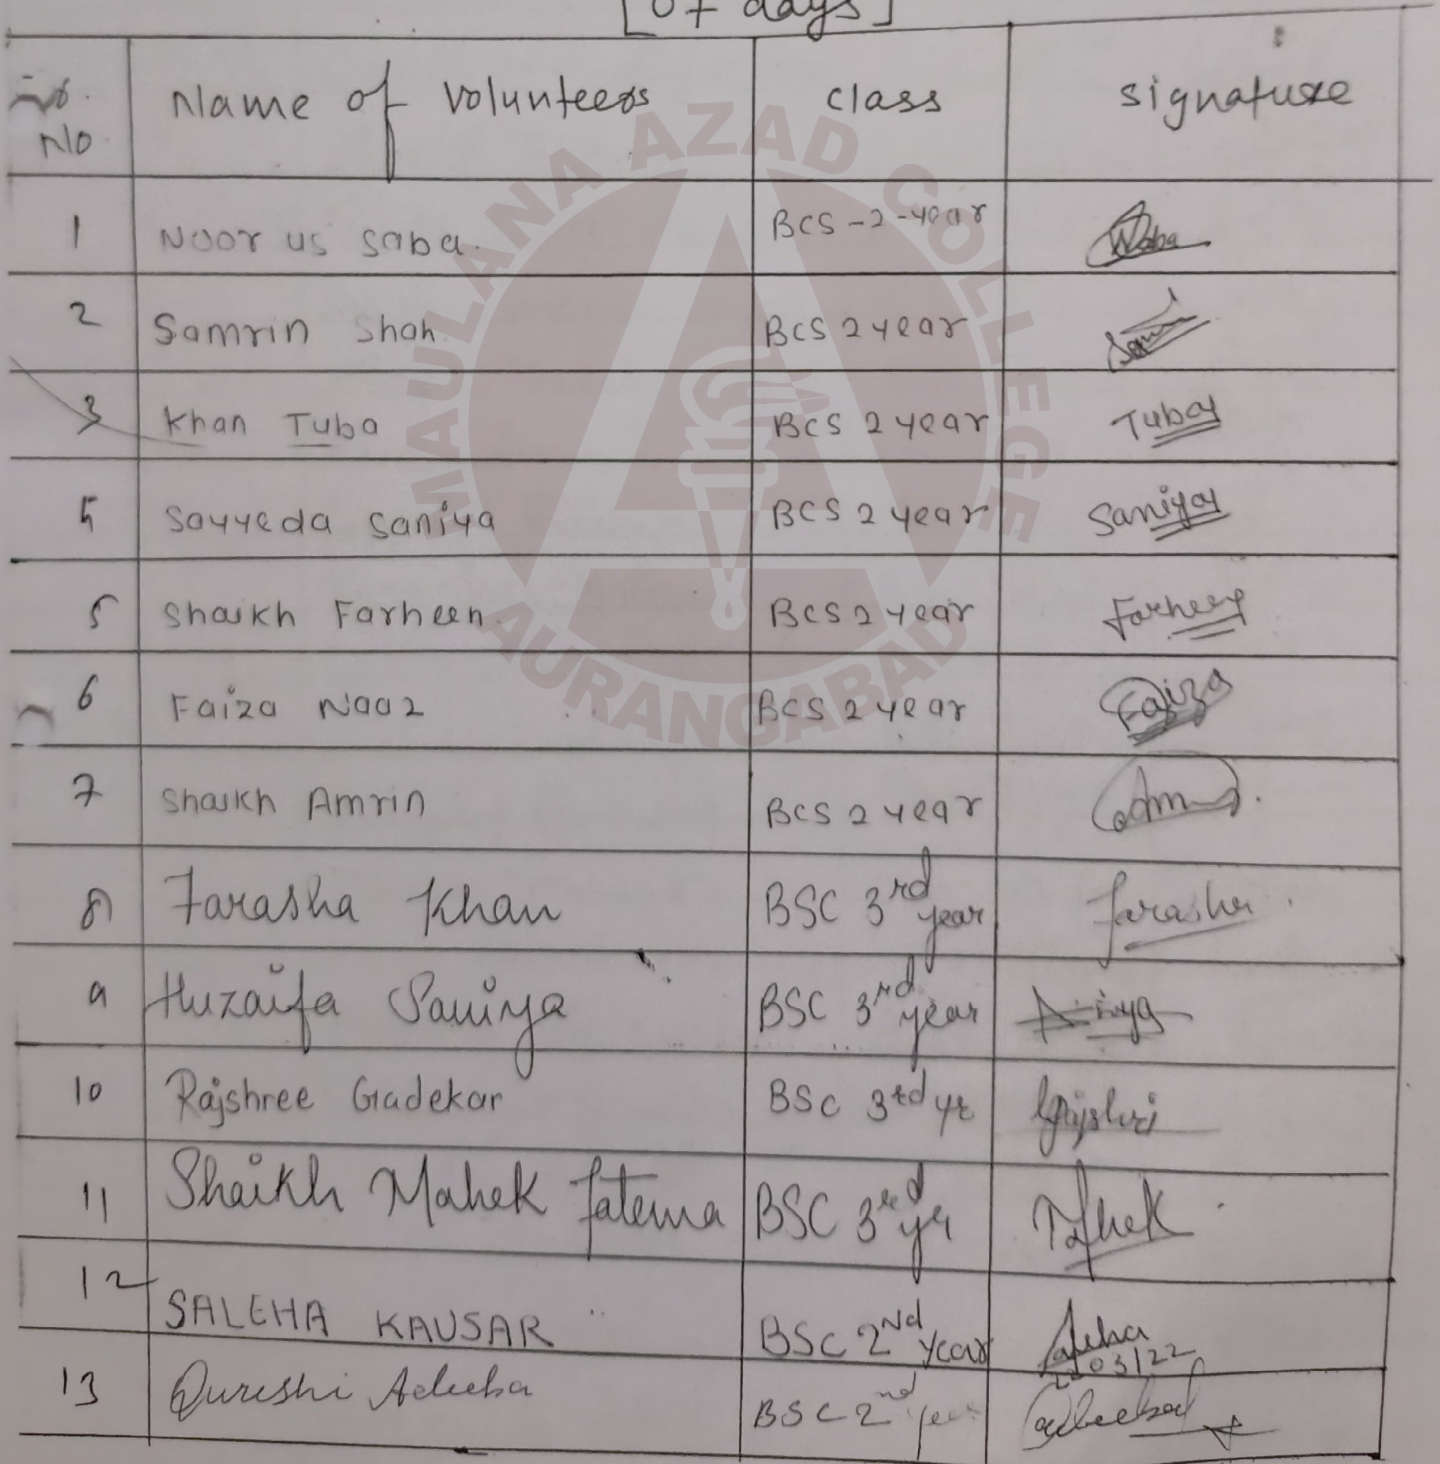 [07 days]
Sr. No Name of Volunteers class signature
1 Noor us saba. BCS-2-year
2 Samrin Shah BCS 2 year
3 Khan Tuba BCS 2 year Tuba
4 Sayyeda Saniya BCS 2 year Saniya
5 Shaikh Farheen. BCS 2 year Farheen
6 Faiza Naaz BCS 2 year Faiza
7 Shaikh Amrin BCS 2 year
8 Farasha Khan BSC 3rd year farasha
9 Huzaifa Saniya BSC 3rd year
10 Rajshree Gadekar BSC 3rd yr Rajshri
11 Shaikh Mahek fatema BSC 3rd yr Mahek
12 SALEHA KAUSAR BSC 2Nd year Saleha
03/22
13 Qureshi Adeeba BSC 2nd year Adeeba
MAULANA AZAD COLLEGE
AURANGABAD